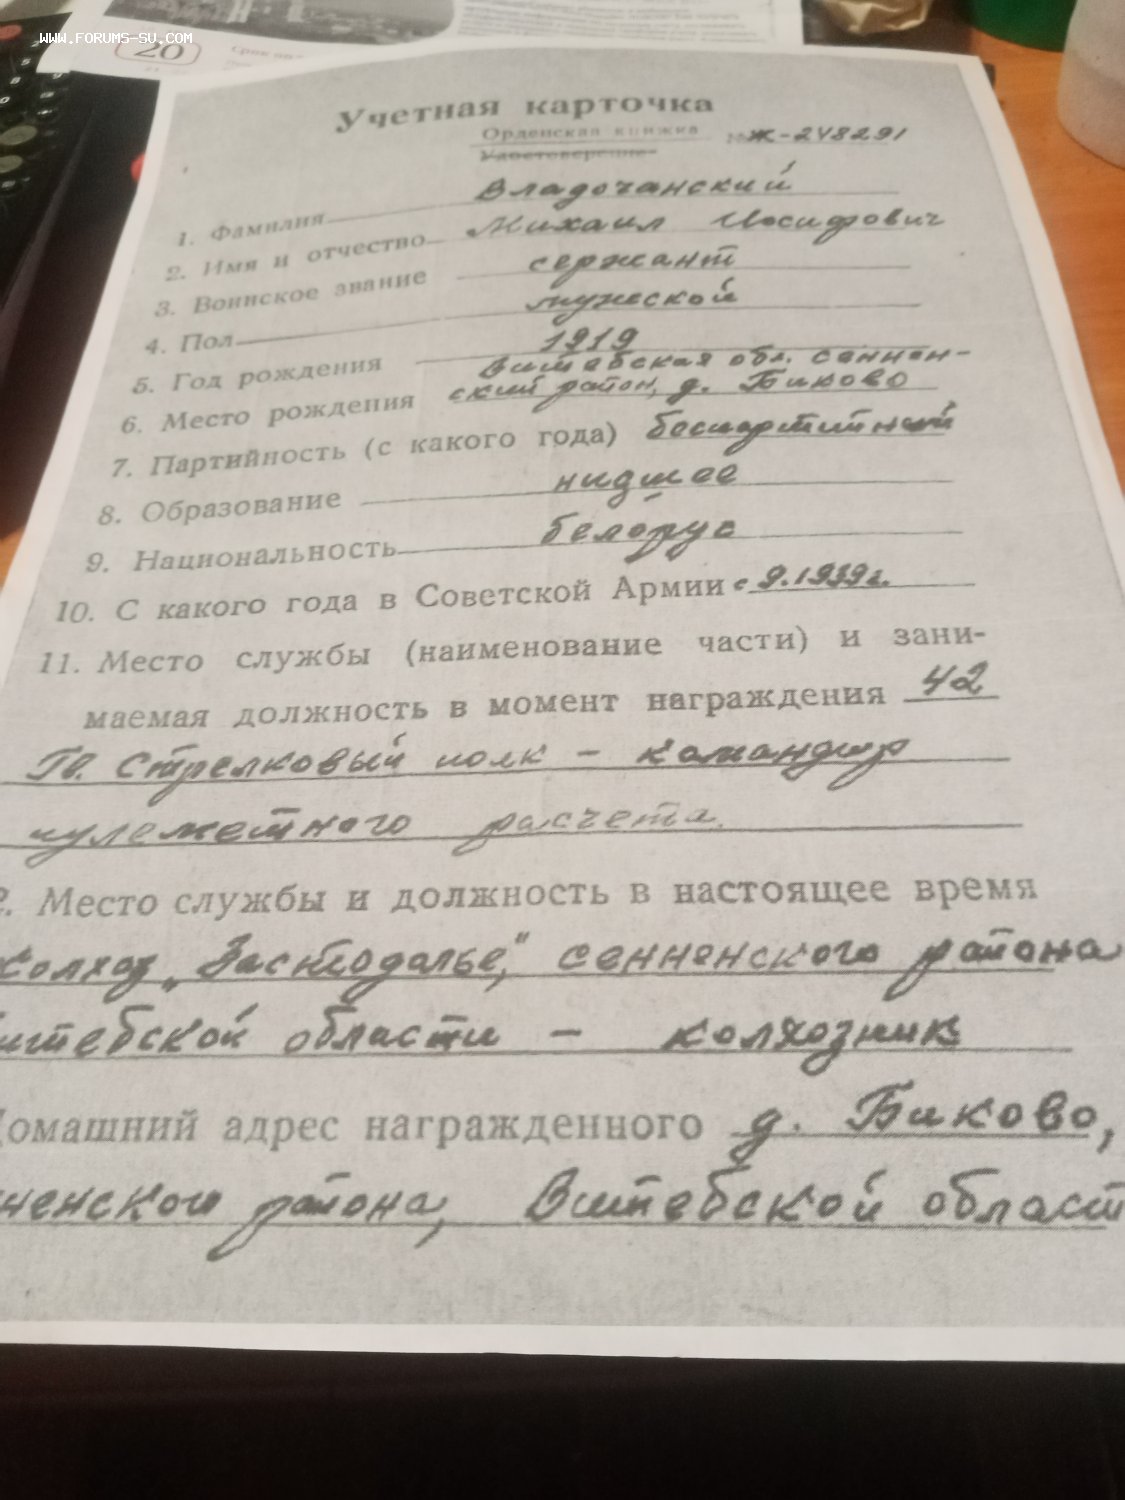 WWW.FORUMS-SU.COM
20
Учетная карточка
Орденская книжка № Ж-248291
Удостоверение
1. Фамилия Владочанский
2. Имя и отчество Михаил Иосифович
3. Воинское звание сержант
4. Пол мужской
5. Год рождения 1919
6. Место рождения Витебская обл. сеннен-
ский район, д. Биково
7. Партийность (с какого года) беспартийный
8. Образование нидшее
9. Национальность белорус
10. С какого года в Советской Армии с 9.1939г.
11. Место службы (наименование части) и зани-
маемая должность в момент награждения 42
Гв. Стрелковый полк - командир
пулеметного расчета.
. Место службы и должность в настоящее время
колхоз „ ", сенненского района
итебской области - колхозник
омашний адрес награжденного д. Биково,
ненского района, Витебской област